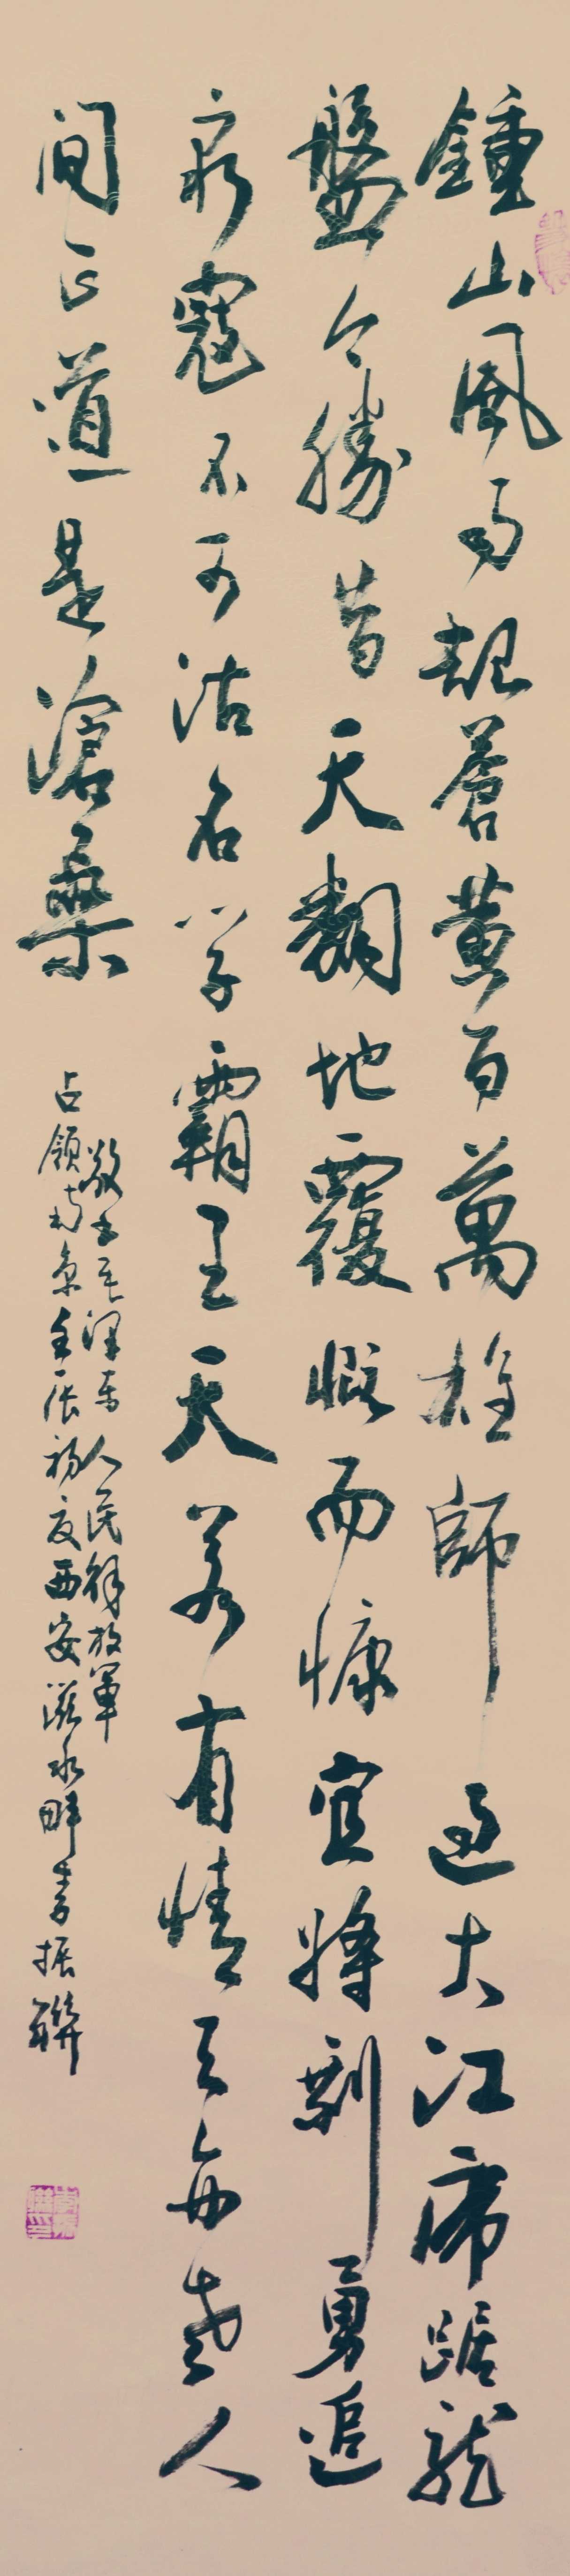 鍾山風雨起蒼黃百萬雄師過大江虎踞龍
盤今勝昔天翻地覆慨而慷宜將剩勇追
窮寇不可沽名學霸王天若有情天亦老人
間正道是滄桑
敬書毛澤東人民解放軍
占領南京 西安滋水畔書振聯